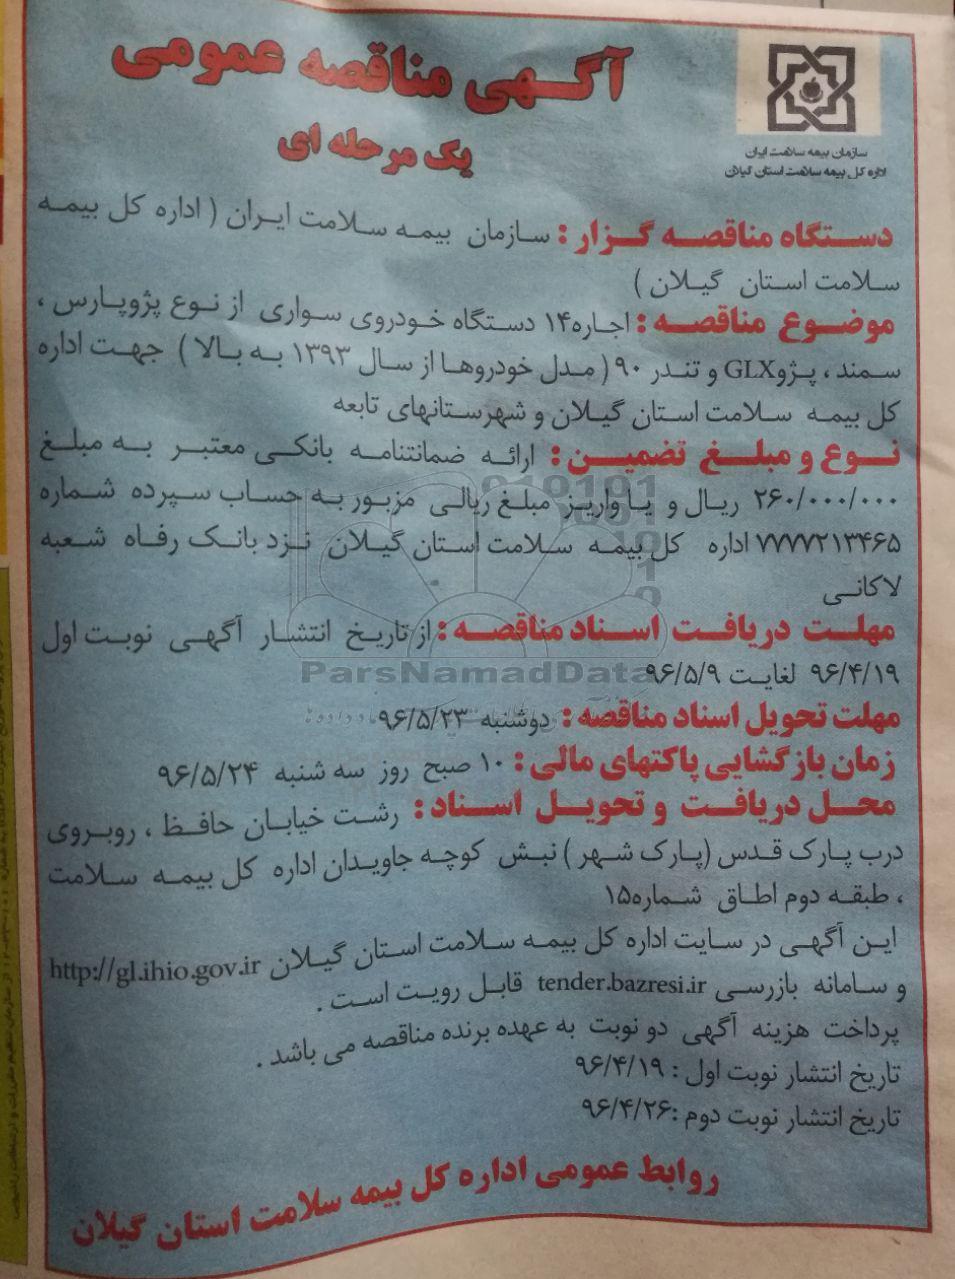 آگهی مناقصه عمومی
یک مرحله ای
سازمان بیمه سلامت ایران
اداره کل بیمه سلامت استان گیلان
دستگاه مناقصه گزار : سازمان بیمه سلامت ایران ( اداره کل بیمه
سلامت استان گیلان )
موضوع مناقصه : اجاره۱۴ دستگاه خودروی سواری از نوع پژوپارس ،
سمند ، پژوGLX و تندر ۹۰ ( مدل خودروها از سال ۱۳۹۳ به بالا ) جهت اداره
کل بیمه سلامت استان گیلان و شهرستانهای تابعه
نوع و مبلغ تضمین : ارائه ضمانتنامه بانکی معتبر به مبلغ
۲۶۰/۰۰۰/۰۰۰ ریال و یا واریز مبلغ ریالی مزبور به حساب سپرده شماره
۷۷۷۷۲۱۳۴۶۵ اداره کل بیمه سلامت استان گیلان نزد بانک رفاه شعبه
لاکانی
مهلت دریافت اسناد مناقصه : از تاریخ انتشار آگهی نوبت اول
۹۶/۴/۱۹ لغایت ۹۶/۵/۹
ParsNamadData
مهلت تحویل اسناد مناقصه : دوشنبه ۹۶/۵/۲۳
زمان بازگشایی پاکتهای مالی : ۱۰ صبح روز سه شنبه ۹۶/۵/۲۴
محل دریافت و تحویل اسناد : رشت خیابان حافظ ، روبروی
درب پارک قدس (پارک شهر ) نبش کوچه جاویدان اداره کل بیمه سلامت
، طبقه دوم اطاق شماره۱۵
این آگهی در سایت اداره کل بیمه سلامت استان گیلان http://gl.ihio.gov.ir
و سامانه بازرسی tender.bazresi.ir قابل رویت است .
پرداخت هزینه آگهی دو نوبت به عهده برنده مناقصه می باشد .
تاریخ انتشار نوبت اول : ۹۶/۴/۱۹
تاریخ انتشار نوبت دوم :۹۶/۴/۲۶
روابط عمومی اداره کل بیمه سلامت استان گیلان